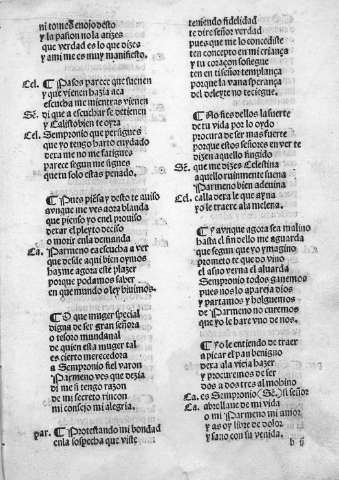 ni tomes enojo desto
y la passion no la atizes
que verdad es lo que dizes
y ami me es muy manifiesto.
Cel. ¶ Passos parece que suenen
y que vienen hazia aca
escucha me mientras vienen
Se. di que a escuchar se detienen
y Calisto bien te oyra
Cel. Sempronio que persigues
que yo tengo harto cuydado
dexa me no me fatigues
parece segun me sigues
que tu solo estas penado.
¶ Puto piensa y desto te auiso
aunque me ves aora blanda
que pienso yo en el prouiso
de tar el pleyto deciso
o morir en la demanda
Ca. Parmeno ea escucha a ver
que desde aqui bien oymos
hazme agora este plazer
porque podamos saber
en que mundo o ley biuimos.
¶ O que muger special
digna de ser gran señora
o tesoro mundanal
de quien esta muger tal
es cierto merecedora
a Sempronio fiel varon
Parmeno ves que dezia
di me si tengo razon
de mi secreto rincon
mi consejo mi alegria.
par. ¶ Protestando mi bondad
en la sospecha que viste
teniendo fidelidad
te dire señor verdad
pues que me lo concediste
ten concepto en mi criança
y tu coraçon sosiegue
ten en tu señor templança
porque la vana sperança
del deleyte no te ciegue.
¶ No fies dellos la suerte
de tu vida por lo oydo
procura de ser mas fuerte
porque estos señores en ver te
dizen aquello fingido
Se. que me dizes Celestina
aquello ruinmente suena
Parmeno bien adeuina
Cel. calla dexa le que ayna
yo le traere a la melena.
¶ y aunque agora sea malino
hasta el fin dello me aguarda
que segun que yo ymagino
prometo te que do vino
el asno verna el aluarda
Sempronio todos ganemos
pues nos lo apareja dios
y partamos y holguemos
de Parmeno no curemos
que yo le hare vno de nos.
¶ yo le entiendo de traer
a picar el pan benigno
dexa ala vieja hazer
y procuremos de ser
dos a dos tres al mohino
Ca. es Sempronio (Se.) si señor
Ca. abre llaue de mi vida
o mi Parmeno mi amor
y as oy libre de dolor
y sano con su venida.
b ij